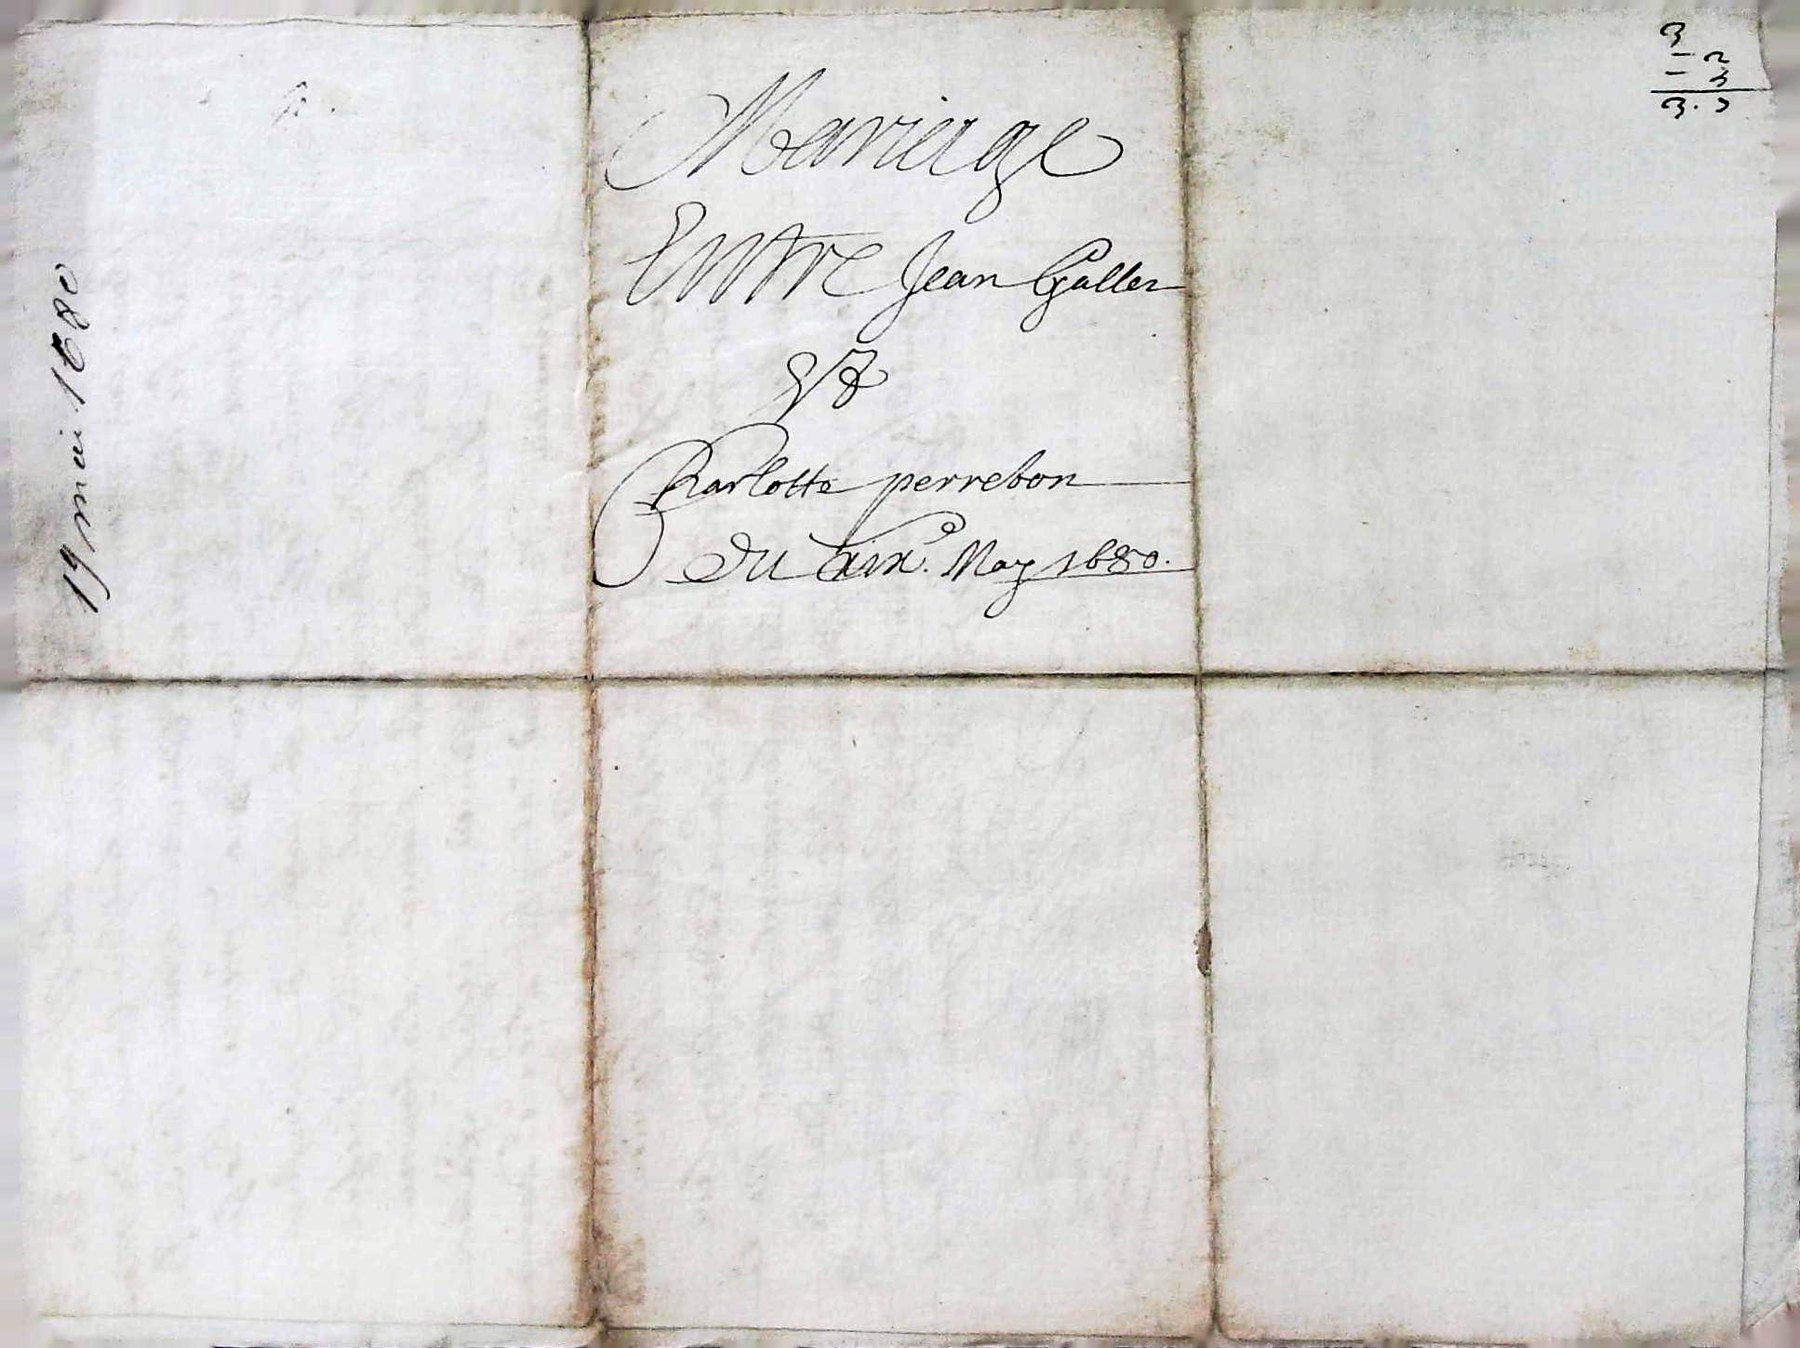 Mariage
Entre Jean Galler
Et
Charlotte perrebon
Du xixe. May 1680.
19 mai 1680
3
- 2
- 3
3. 5